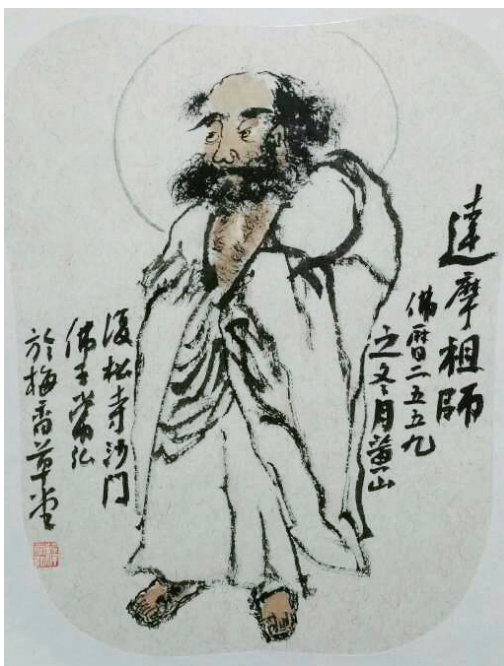 達摩祖師
佛曆二五五九
之冬月黃山
復松寺沙門
佛子常弘
於梅香草堂